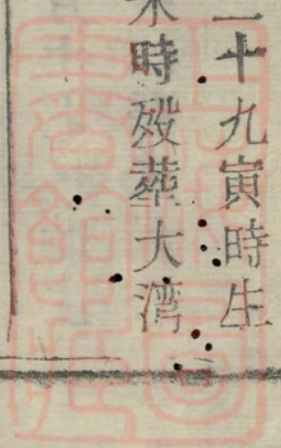 二十九寅時生
未時殁葬大湾